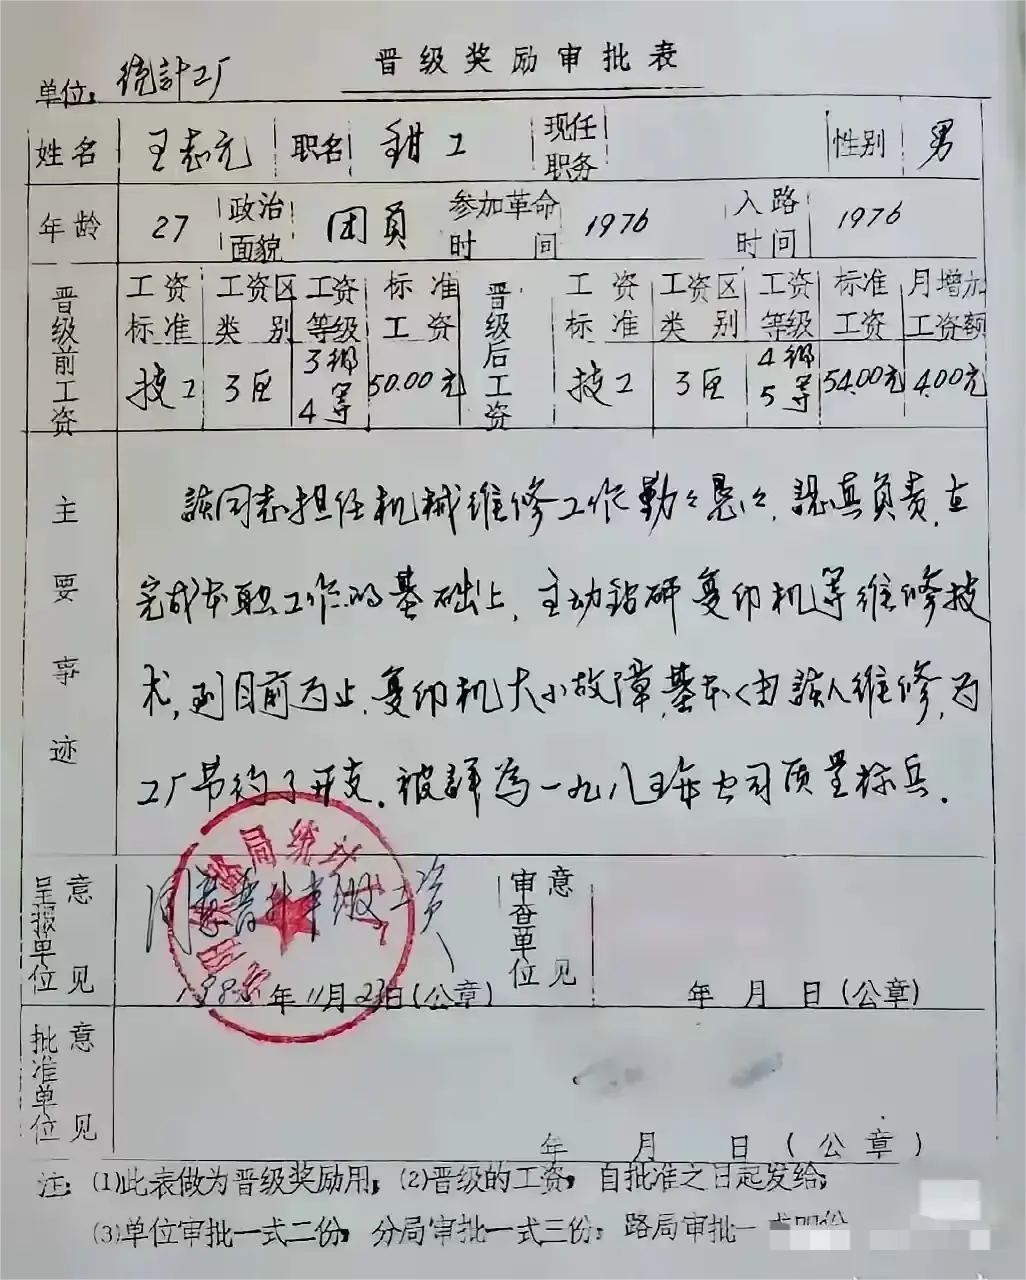 晋级奖励审批表
单位：统計工厂
姓名 王志元 职名 钳工 现任职务 性别 男
年龄 27 政治面貌 团员 参加革命时间 1976 入路时间 1976
晋级前工资 工资标准 工资区类别 工资等级 标准工资 晋级后工资 工资标准 工资区类别 工资等级 标准工资 月增加工资额
技工 3区 3级4等 50.00元 技工 3区 4级5等 54.00元 4.00元
主要事迹
該同志担任机械维修工作勤々恳々，認真负责，在
完成本职工作的基础上，主动钻研复印机等维修技
术，到目前为止，复印机大小故障，基本上由該人维修，为
工厂节约了开支。被評為一九八五年公司质量标兵。
呈报单位意见 同意晋升半级工资 审查单位意见
1985年11月23日(公章) 年 月 日(公章)
批准单位意见
年 月 日(公章)
注：(1)此表做为晋级奖励用；(2)晋级的工资，自批准之日起发给；
(3)单位审批一式二份；分局审批一式三份；路局审批一式四份